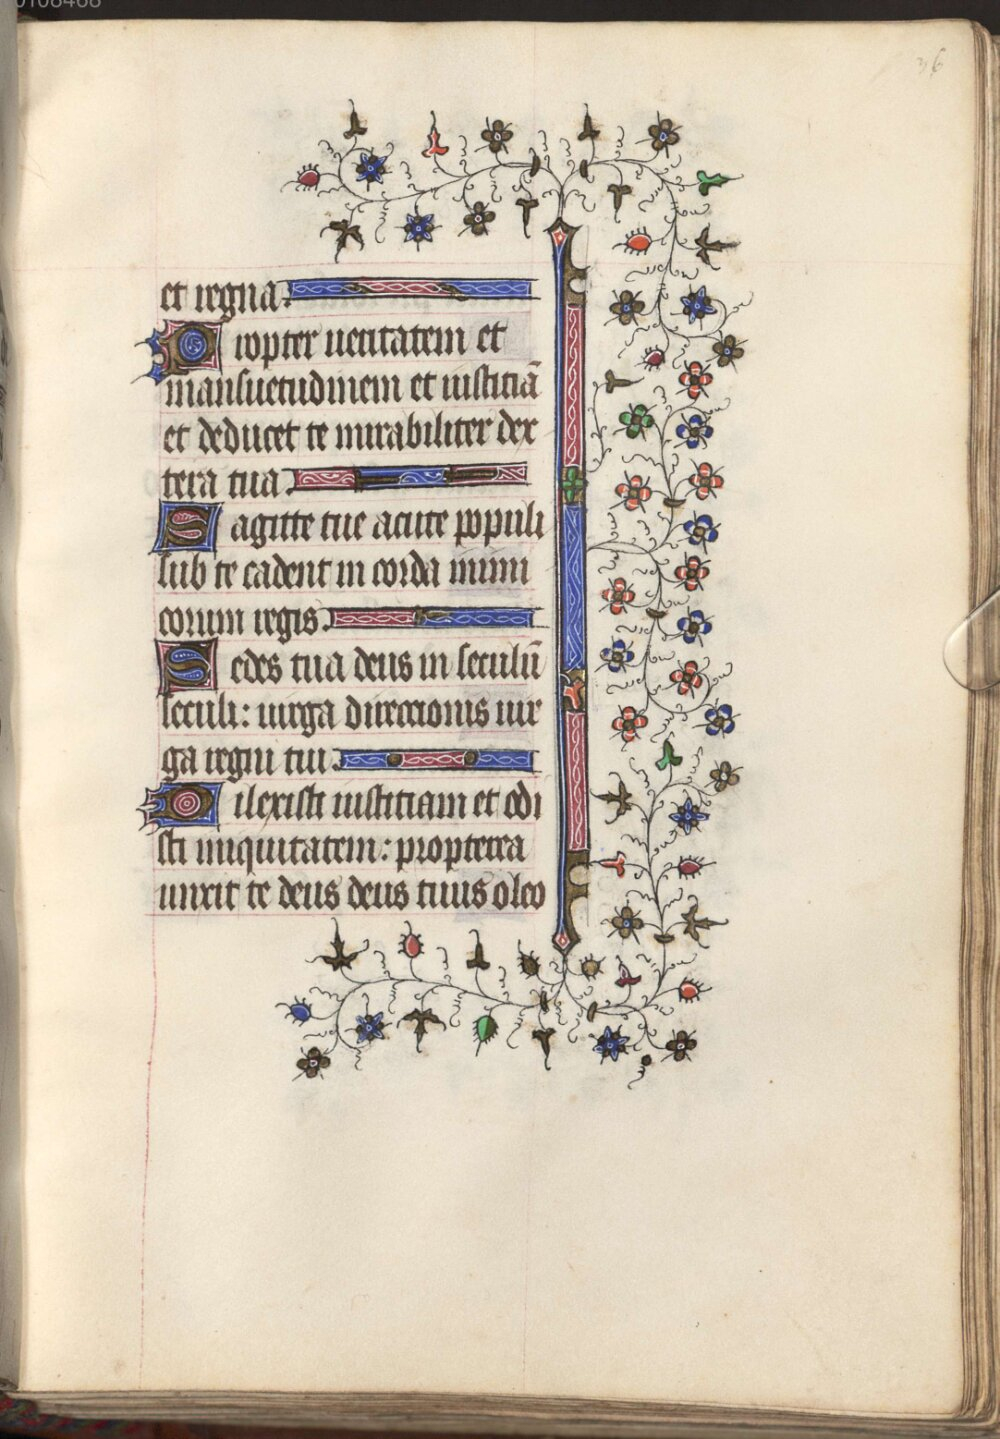 0108468
36
et regna.
Propter ueritatem et
mansuetudinem et iusticiā
et deducet te mirabiliter dex
tera tua.
Sagitte tue acute populi
sub te cadent in corda inimi
corum regis.
Sedes tua deus in seculū
seculi: uirga direccionis uir
ga regni tui.
Dilexisti iustitiam et odi
sti iniquitatem: propterea
unxit te deus deus tuus oleo